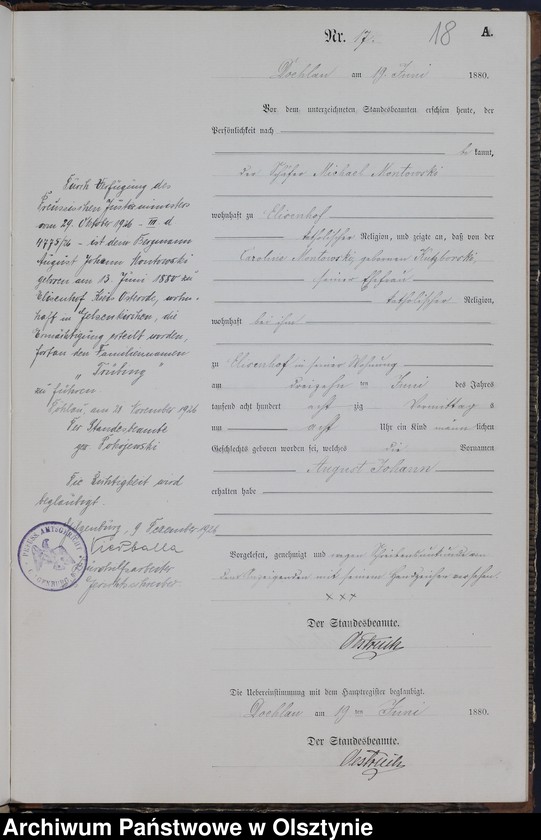 Nr. 17. 18 A.
Döhlau am 19 Juni 1880.
Vor dem unterzeichneten Standesbeamten erschien heute, der
Persönlichkeit nach
be kannt,
der Schäfer Michael Montowski
wohnhaft zu Elisenhof
katholischer Religion, und zeigte an, daß von der
Caroline Montowski, geborenen
seiner Ehefrau
katholischer Religion,
wohnhaft bei ihm
zu Elisenhof in seiner Wohnung
am dreizehn ten Juni des Jahres
tausend acht hundert acht zig Vormittag s
um acht Uhr ein Kind männ lichen
Geschlechts geboren worden sei, welches die Vornamen
August Johann
erhalten habe
Vorgelesen, genehmigt und wegen Schreibensunkunde vom
Anzeigenden mit seinem Handzeichen versehen.
x x x
Der Standesbeamte.
Die Uebereinstimmung mit dem Hauptregister beglaubigt.
Döhlau am 19 ten Juni 1880.
Der Standesbeamte.
Durch Verfügung des
Preussischen Justizministers
vom 29. Oktober 1926 - III d
4775/26 - ist dem Bergmann
August Johann Montowski
geboren am 13. Juni 1880 zu
Elisenhof Kreis Osterode, wohn-
haft in Gelsenkirchen, die
Ermächtigung erteilt worden,
fortan den Familiennamen
"
zu führen
Döhlau, am 21. November 1926
Der Standesbeamte
gez.
Die Richtigkeit wird
beglaubigt.
Gilgenburg, 9 Dezember 1926
PREUSS. AMTSGERICHT
Archiwum Państwowe w Olsztynie